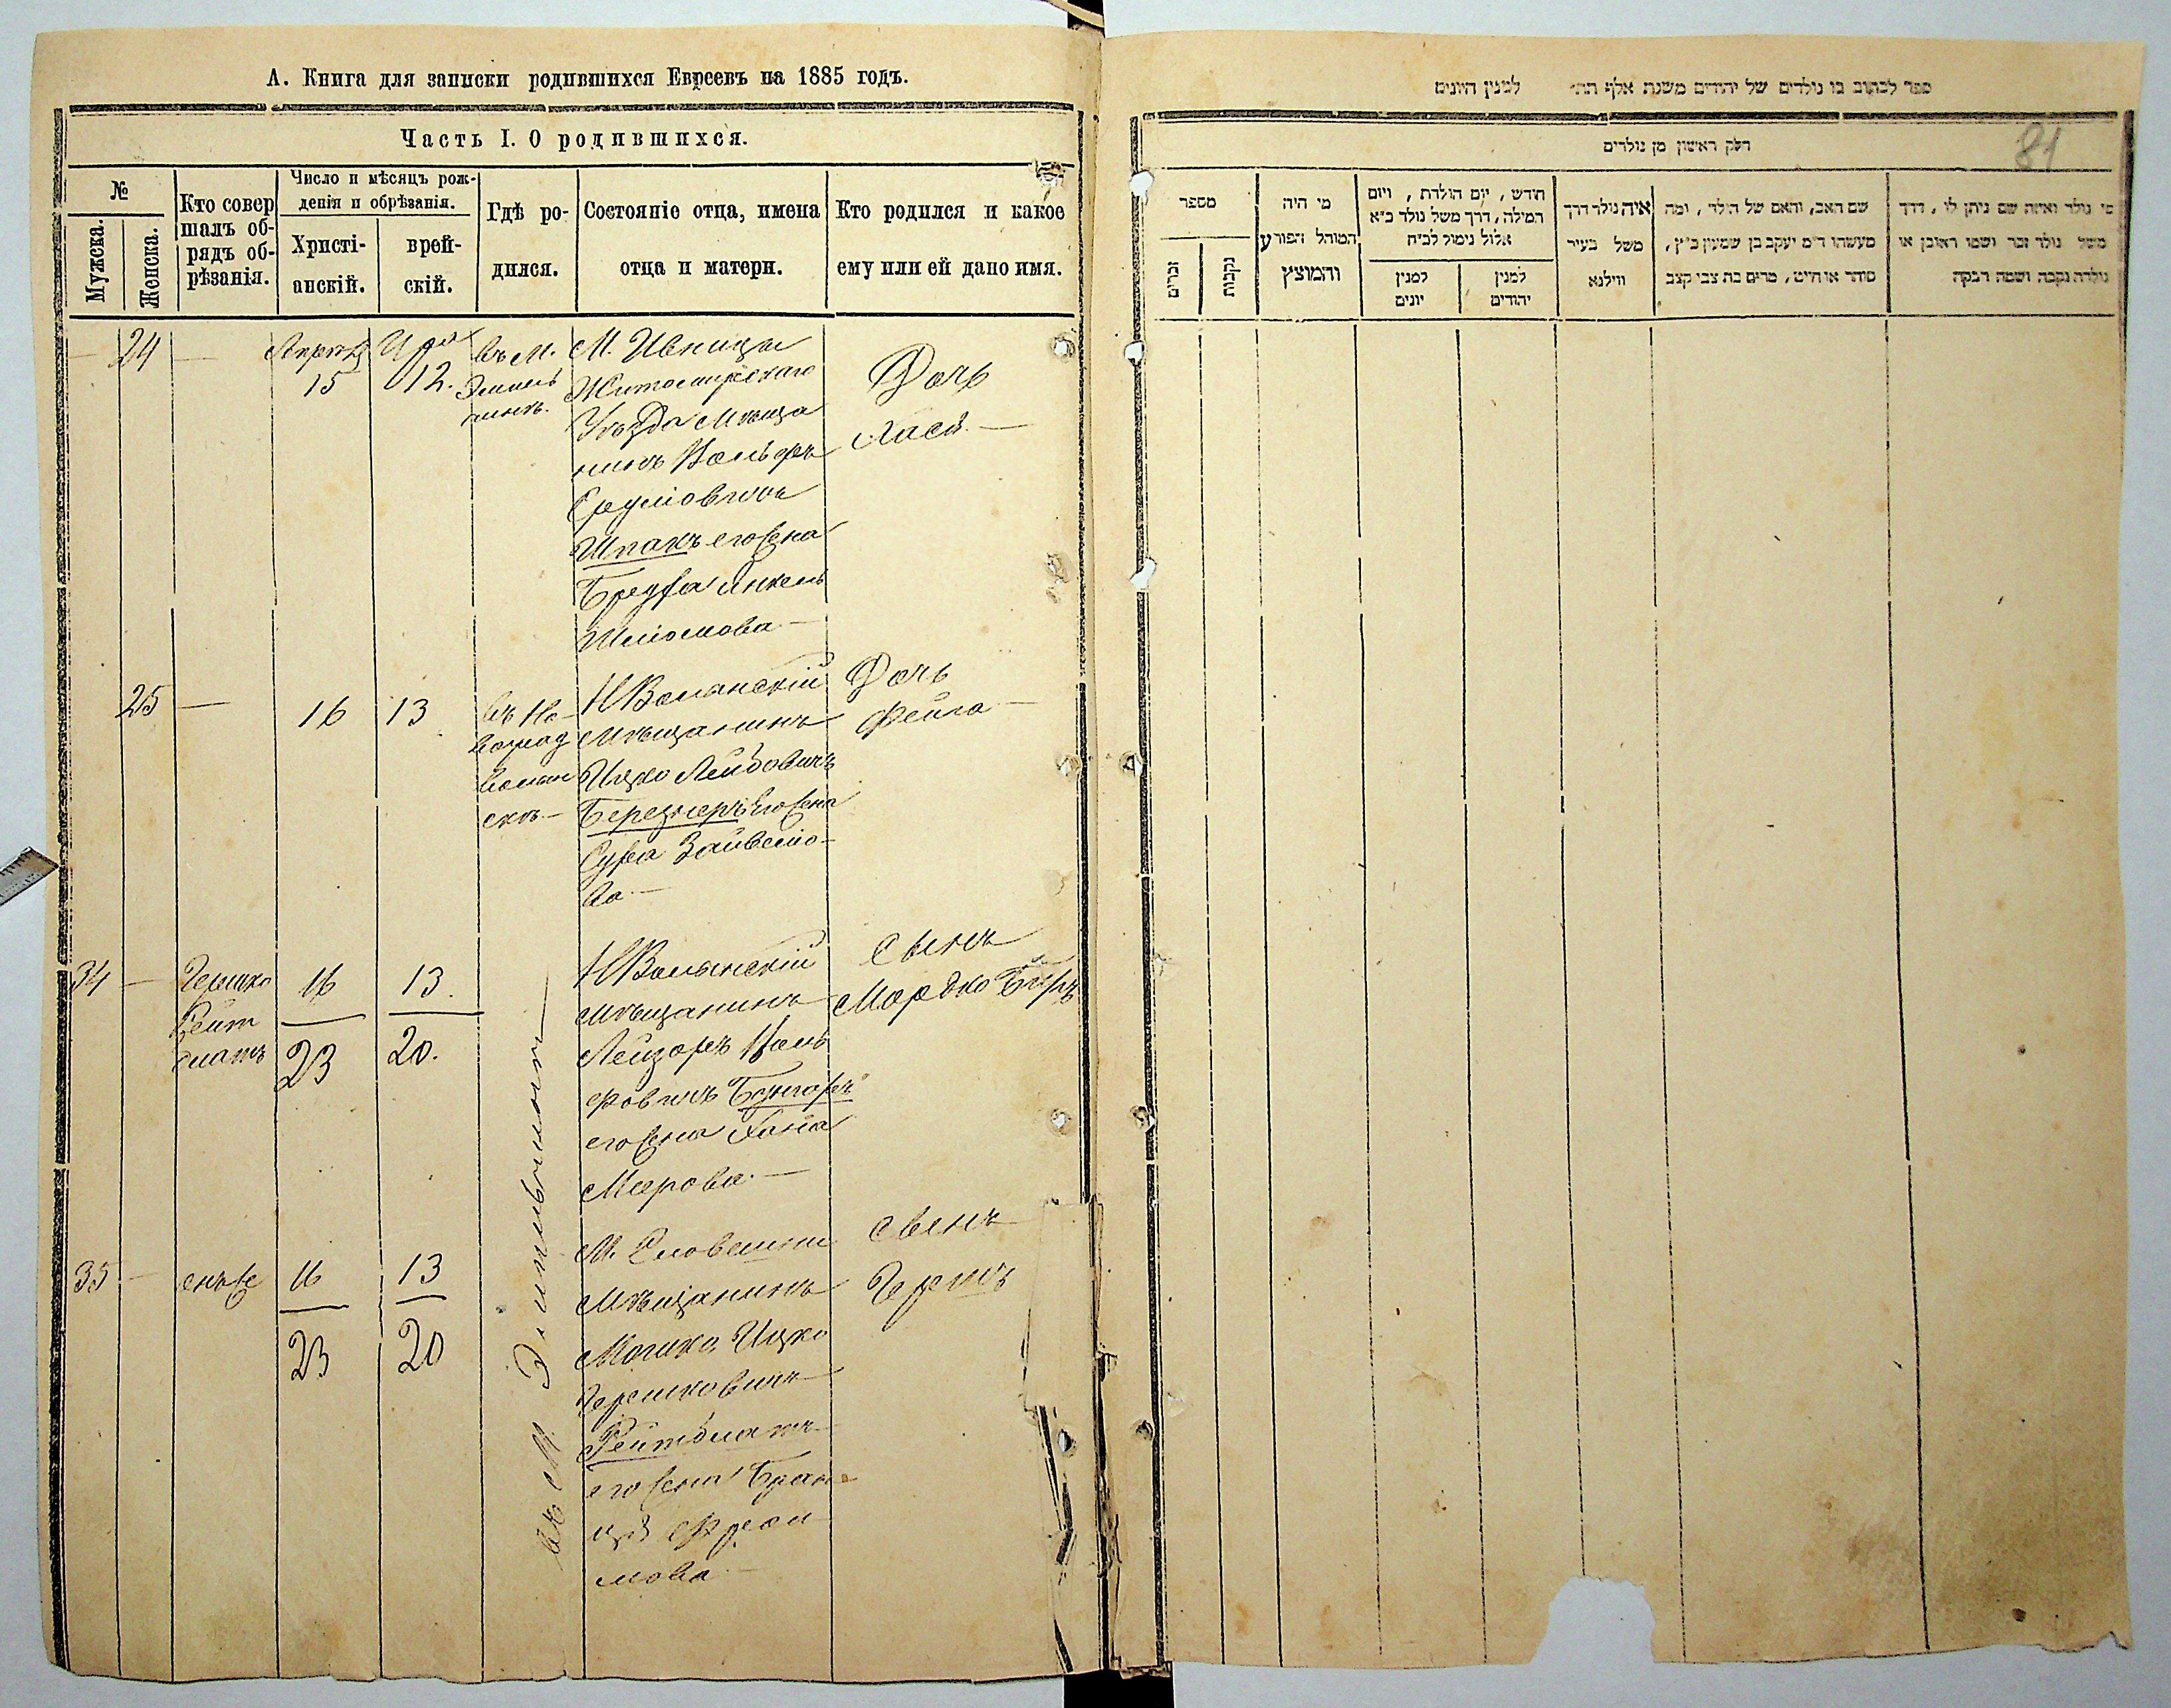 А. Книга для записки родившихся Евреевъ на 1885 годъ.
Часть I. О родившихся.
№
Мужска.
Женска.
Кто совер
шалъ об-
рядъ об-
рѣзанія.
Число и мѣсяцъ рож-
денія и обрѣзанія.
Христі-
анскій.
врей-
скій.
Гдѣ ро-
дился.
Состояніе отца, имена
отца и матери.
Кто родился и какое
ему или ей дано имя.
24
15
12.
въ м.
М. Ивницы
Житомирскаго
Уѣзда мѣща
нинъ Вольфъ
Сруліовичъ
Шпакъ его жена
Шліомова
Дочь
25
16
13
въ Но-
воград
волын
скъ
НВолынскій
мѣщанинъ
Ицко Лейбовичъ
его жена
Сура Зайвело-
ва
Дочь
Фейга
34
Гершко
Рейт
блатъ
16
13.
23
20.
НВолынскій
мѣщанинъ
Лейзоръ Воль
фовичъ
его жена Хана
Меерова
Сынъ
Мордко Беръ
35
онъ же
16
13
23
20
въ М. Эмильчинѣ
мѣщанинъ
Мошко Ицко
Гершковичъ
Рейтблатъ
его жена Бран
мова
сынъ
ספר לכתוב בו נולדים של יהודים משנת אלף תת׳ למנין היונים
81
חלק ראשון מן נולדים
מספר
זכרים
נקבות
מי היה
המוהל הפורע
והמוצץ
חודש, יום הולדת, ויום
המילה, דרך משל נולד כ״א
אלול נימול לכ״ח
למנין
יונים
למנין
יהודים
איה נולד דרך
משל בעיר
ווילנא
שם האב, והאם של הילד, ומה
מעשהו ד״מ יעקב בן שמעון כ״ץ,
סוחר או חייט, מרים בת צבי קצב
מי נולד ואיזה שם ניתן לו, דרך
משל נולד זכר ושמו ראובן או
נולדה נקבה ושמה רבקה